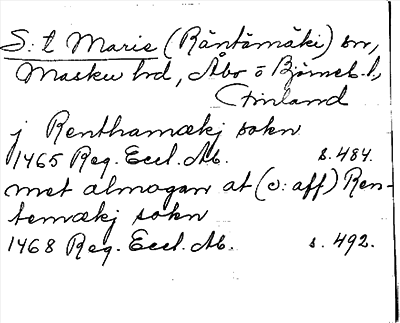 S:t Marie (Räntämäki) sn,
Masku hd, Åbo o Björneb. l,
Finland
j Renthamækj sokn
1465 Reg. Eccl. Ab. s. 484.
met almogan at (o: aff) Ren-
temækj sokn
1468 Reg. Eccl. Ab. s. 492.